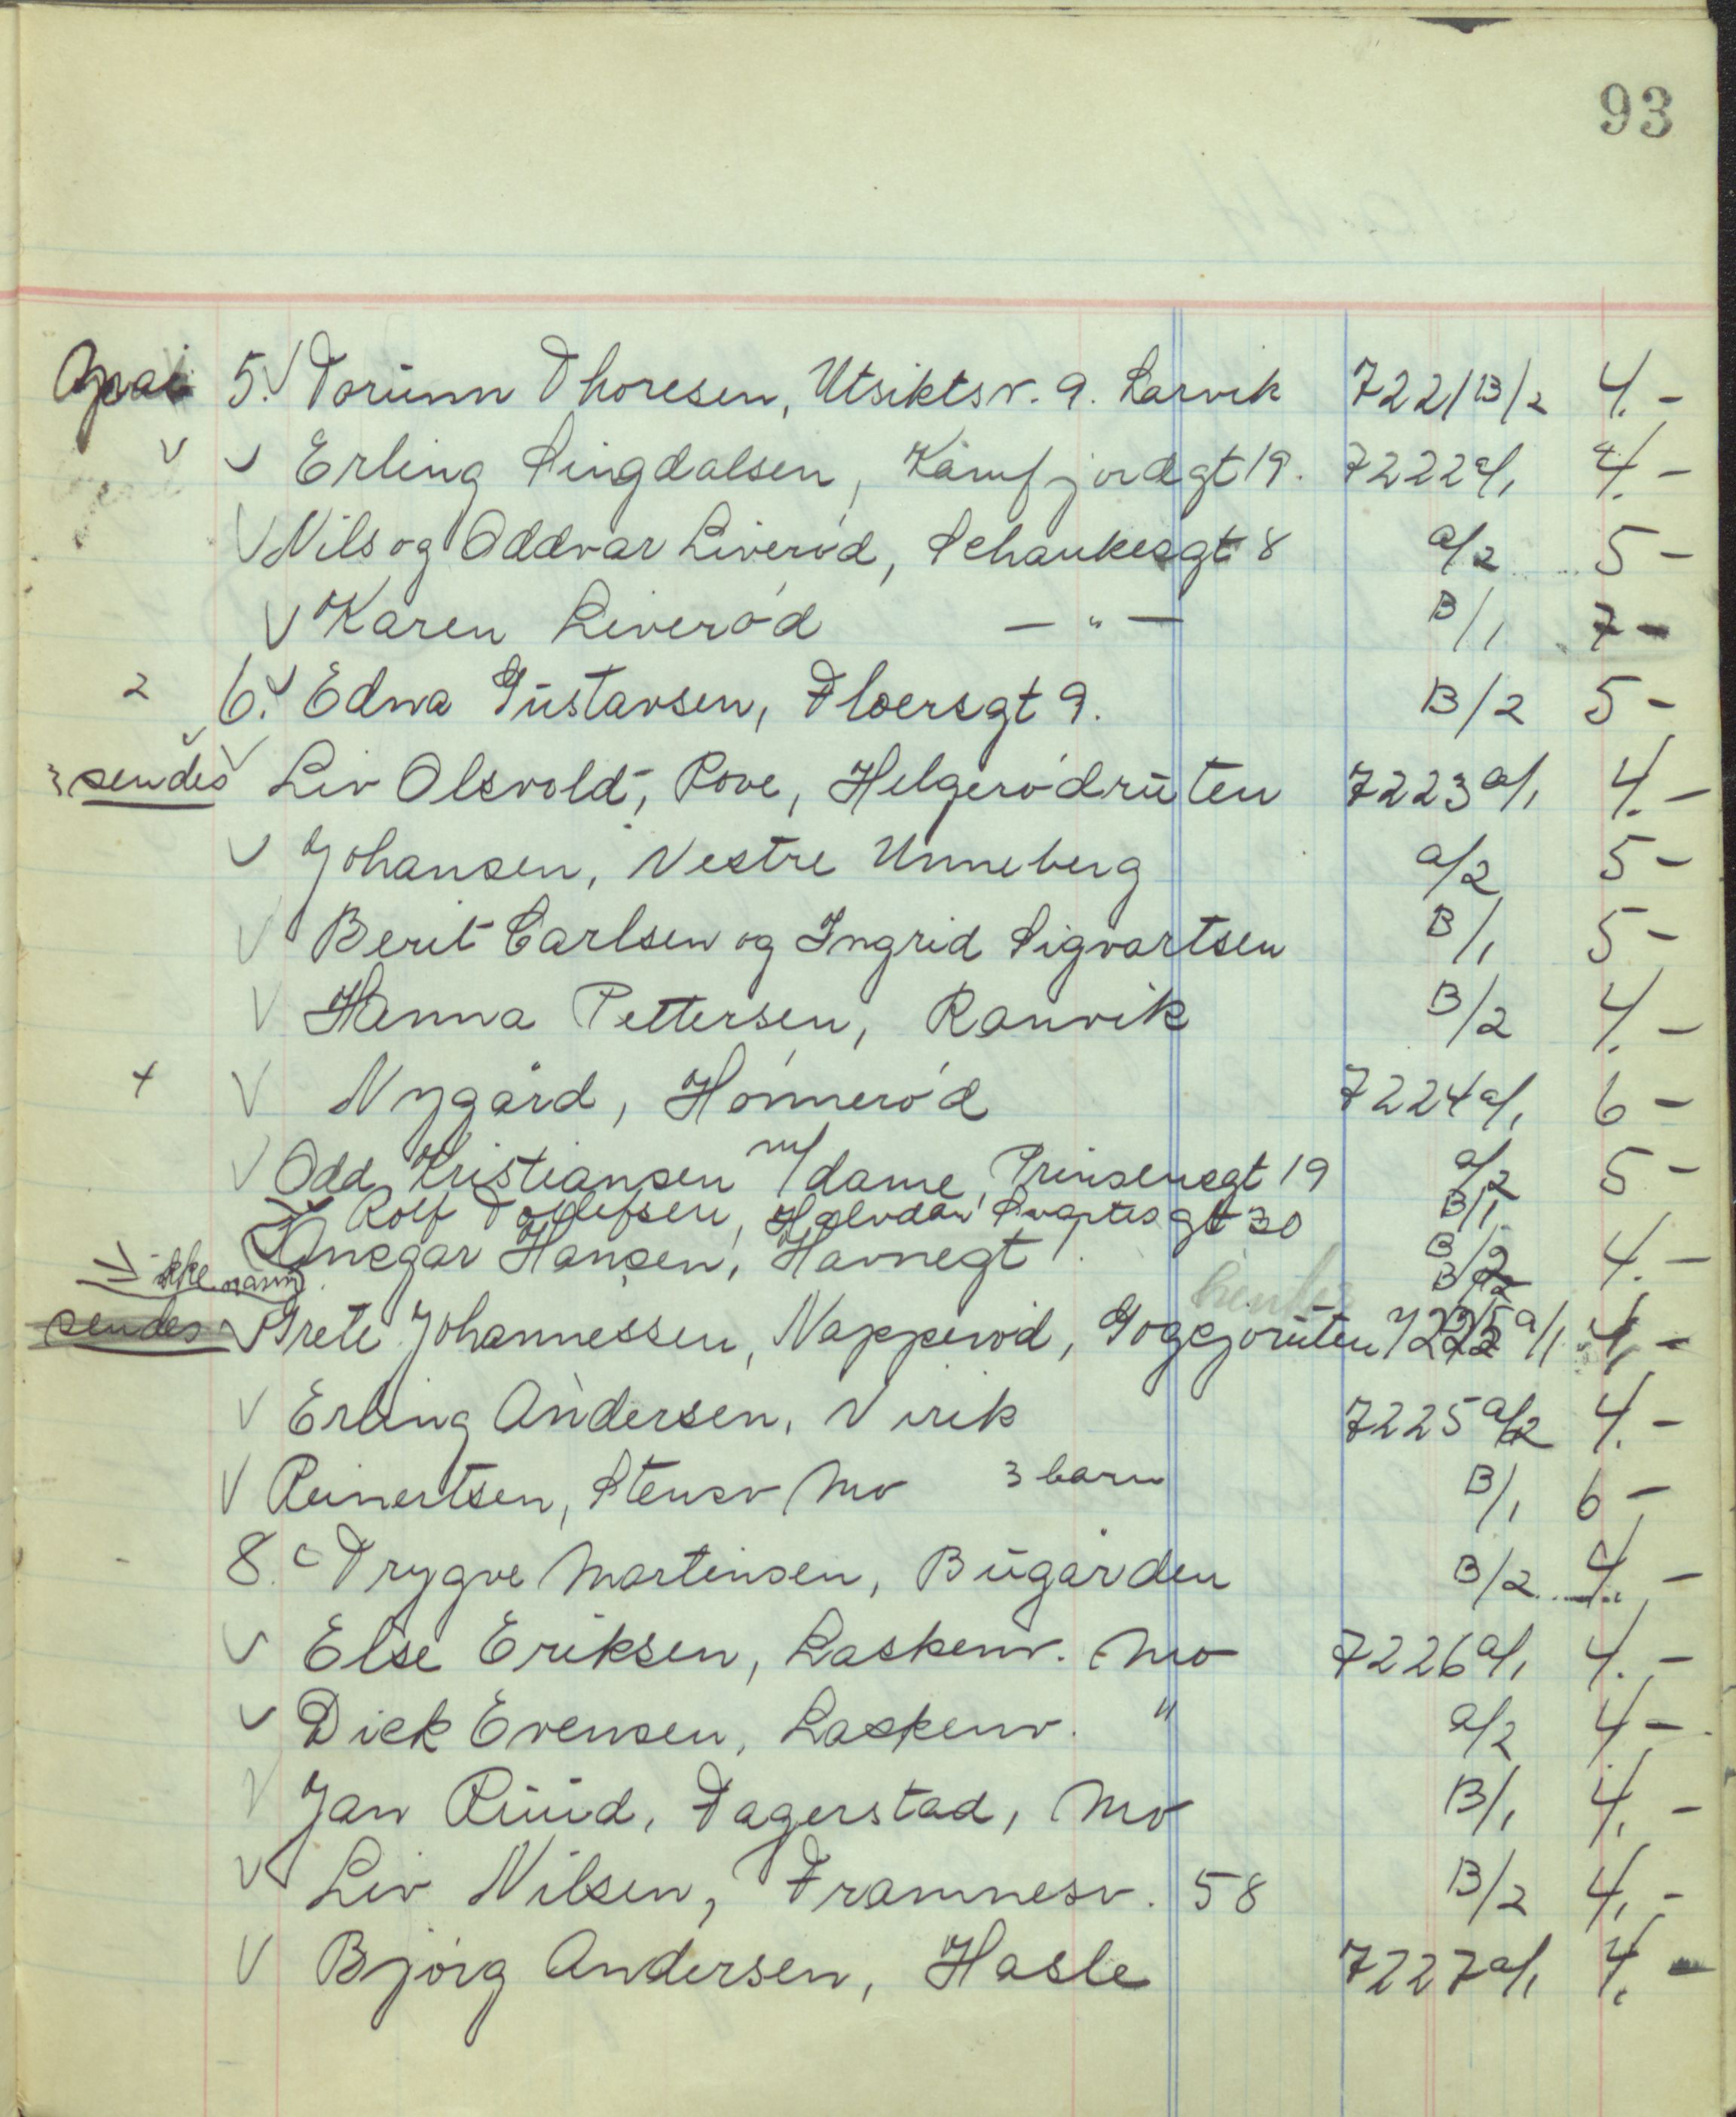 93
5. Torunn Thoresen, Utsiktsv. 9. Larvik 7221 B/2 4.-
Erling Singdalsen, Kamfjordgt 19. 7222 a/1 4.-
Nils og Oddvar Liverød, Schankesgt 8 a/2 5-
Karen Liverød -"- B/1 7-
2 6. Edna Gustavsen, Thoersgt 9. B/2 5-
sendes Liv Olsvold, Rove, Helgerødruten 7223 a/1 4.-
Johansen, Vestre Unneberg a/2 5-
Berit Carlsen og Ingrid Sigvartsen B/1 5-
Hanna Pettersen, Ranvik B/2 4.-
+ Nygård, Hønnerød 7224 a/1 6-
Odd Kristiansen m/dame, Prinsensgt 19 a/2 5-
Rolf Tollefsen, Halvdan Svartes gt 30 B/1
Ansgar Hansen, Havnegt B/2 4.-
ikke navn hentes B/2
sendes Grete Johannessen, Napperød, Gogsjøruten 7225 a/1 4,-
Erling Andersen, Virik 7225 a/2 4.-
Reinertsen, Stensv Mo 3 barn B/1 6-
8. Trygve Martinsen, Bugården B/2 4.-
Else Eriksen, Laskenv. Mo 7226 a/1 4.-
Dick Evensen, Laskenv. " a/2 4-
Jan Ruud, Fagerstad, Mo B/1 4,-
Liv Nilsen, Framnesv. 58 B/2 4,-
Bjørg Andersen, Hasle 7227 a/1 4.-